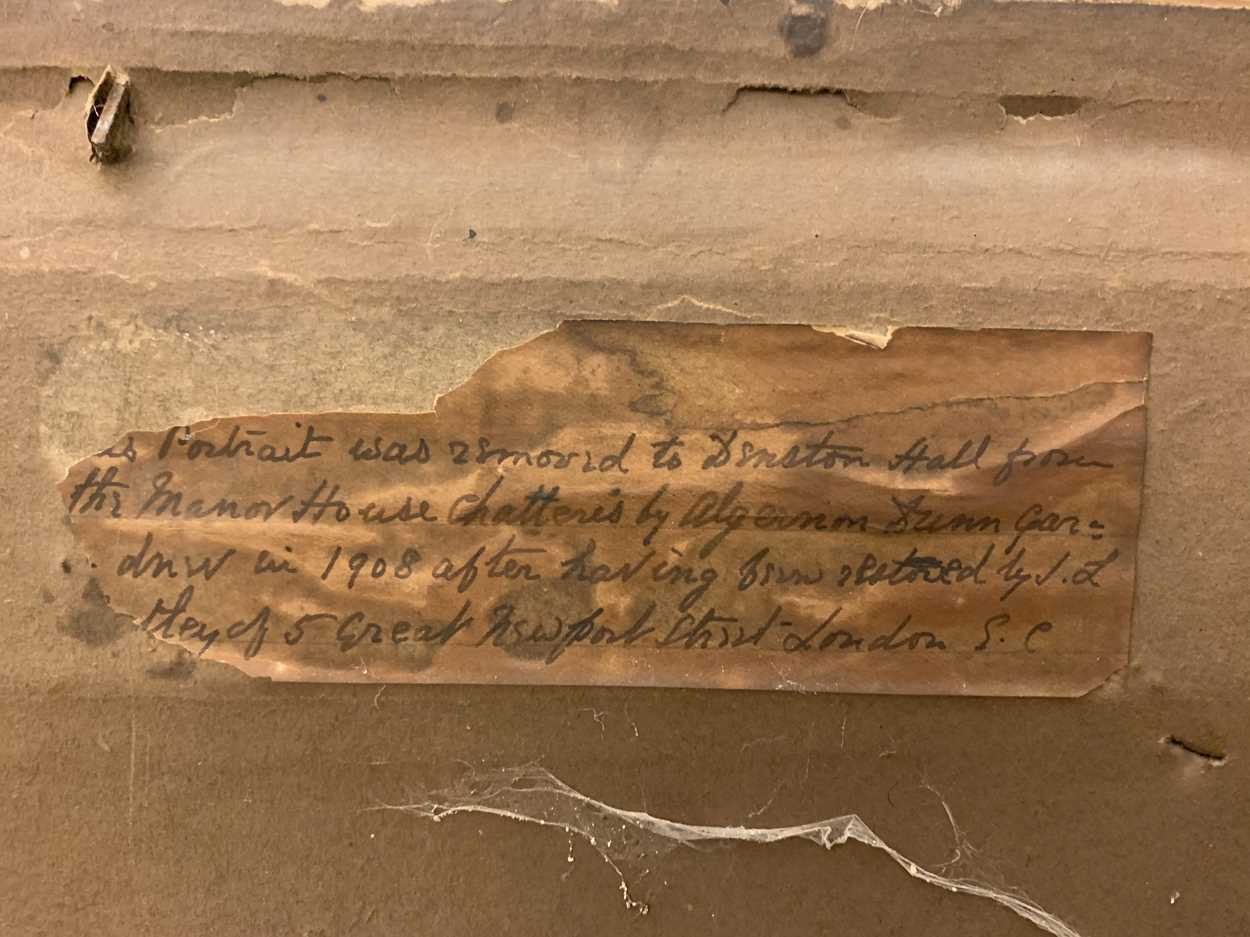 is Portrait was removed to Denston Hall from
the Manor House Chatteris by Algernon Dunn Gar=
dner in 1908 after having been restored by J. L
tley of 5 Great Newport Street London S. C